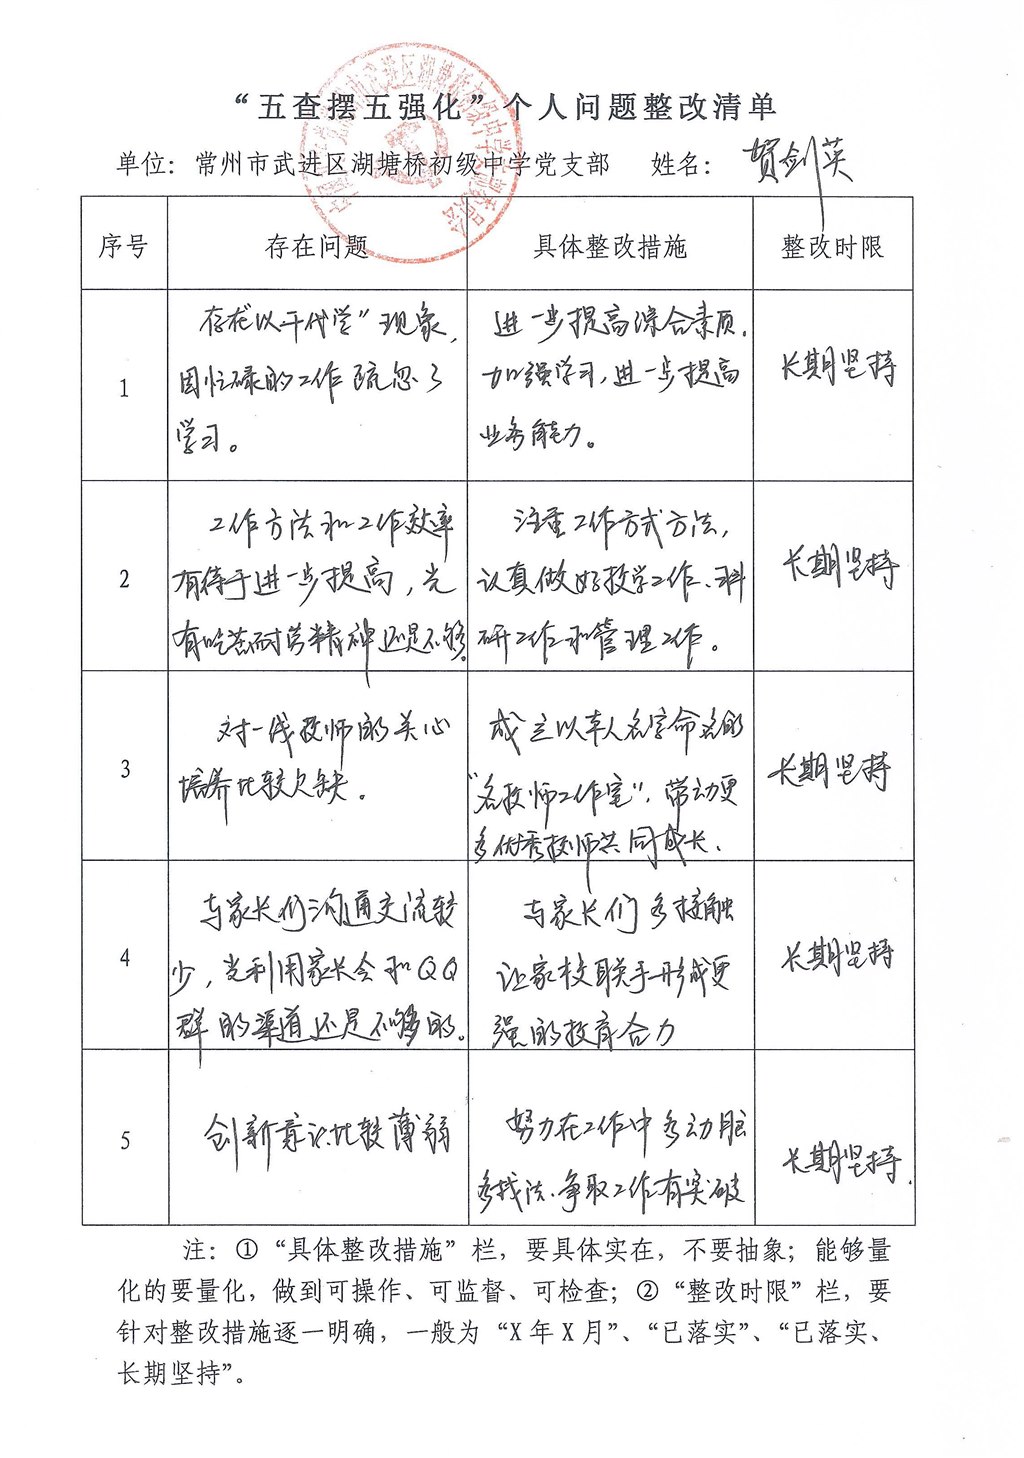 “五查摆五强化”个人问题整改清单
单位：常州市武进区湖塘桥初级中学党支部 姓名：贺剑英
序号 存在问题 具体整改措施 整改时限
1
存在以干代学”现象，
因忙碌的工作疏忽了
学习。
进一步提高综合素质，
加强学习，进一步提高
业务能力。
长期坚持
2
工作方法和工作效率
有待于进一步提高，光
有吃苦耐劳精神还是不够。
注重工作方式方法，
认真做好教学工作、科
研工作和管理工作。
长期坚持
3
对一线教师的关心
培养比较欠缺。
成立以本人名字命名的
“名教师工作室”，带动更
多优秀教师共同成长．
长期坚持
4
与家长们沟通交流较
少，光利用家长会和QQ
群的渠道还是不够的。
与家长们多接触
让家校联手形成更
强的教育合力
长期坚持
5
创新意识比较薄弱
努力在工作中多动脑
多找法、争取工作有突破
长期坚持．
注：①“具体整改措施”栏，要具体实在，不要抽象；能够量
化的要量化，做到可操作、可监督、可检查；②“整改时限”栏，要
针对整改措施逐一明确，一般为“X年X月”、“已落实”、“已落实、
长期坚持”。